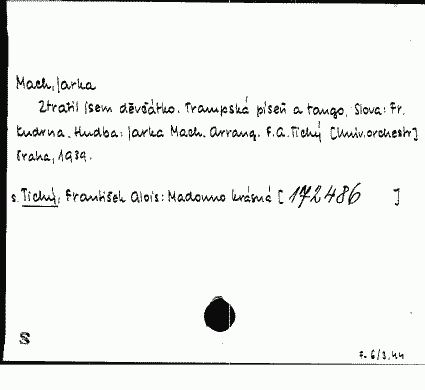 Mach, Jarka
Ztratil jsem děvčátko. Trampská píseň a tango. Slova: Fr.
Kudrna. Hudba: Jarka Mach. Arrang. F.A. Tichý [Univ. orchestr]
Praha, 1939.
s. Tichý, František Alois: Madonno krásná [172486 ]
S
F. 6/3, 44